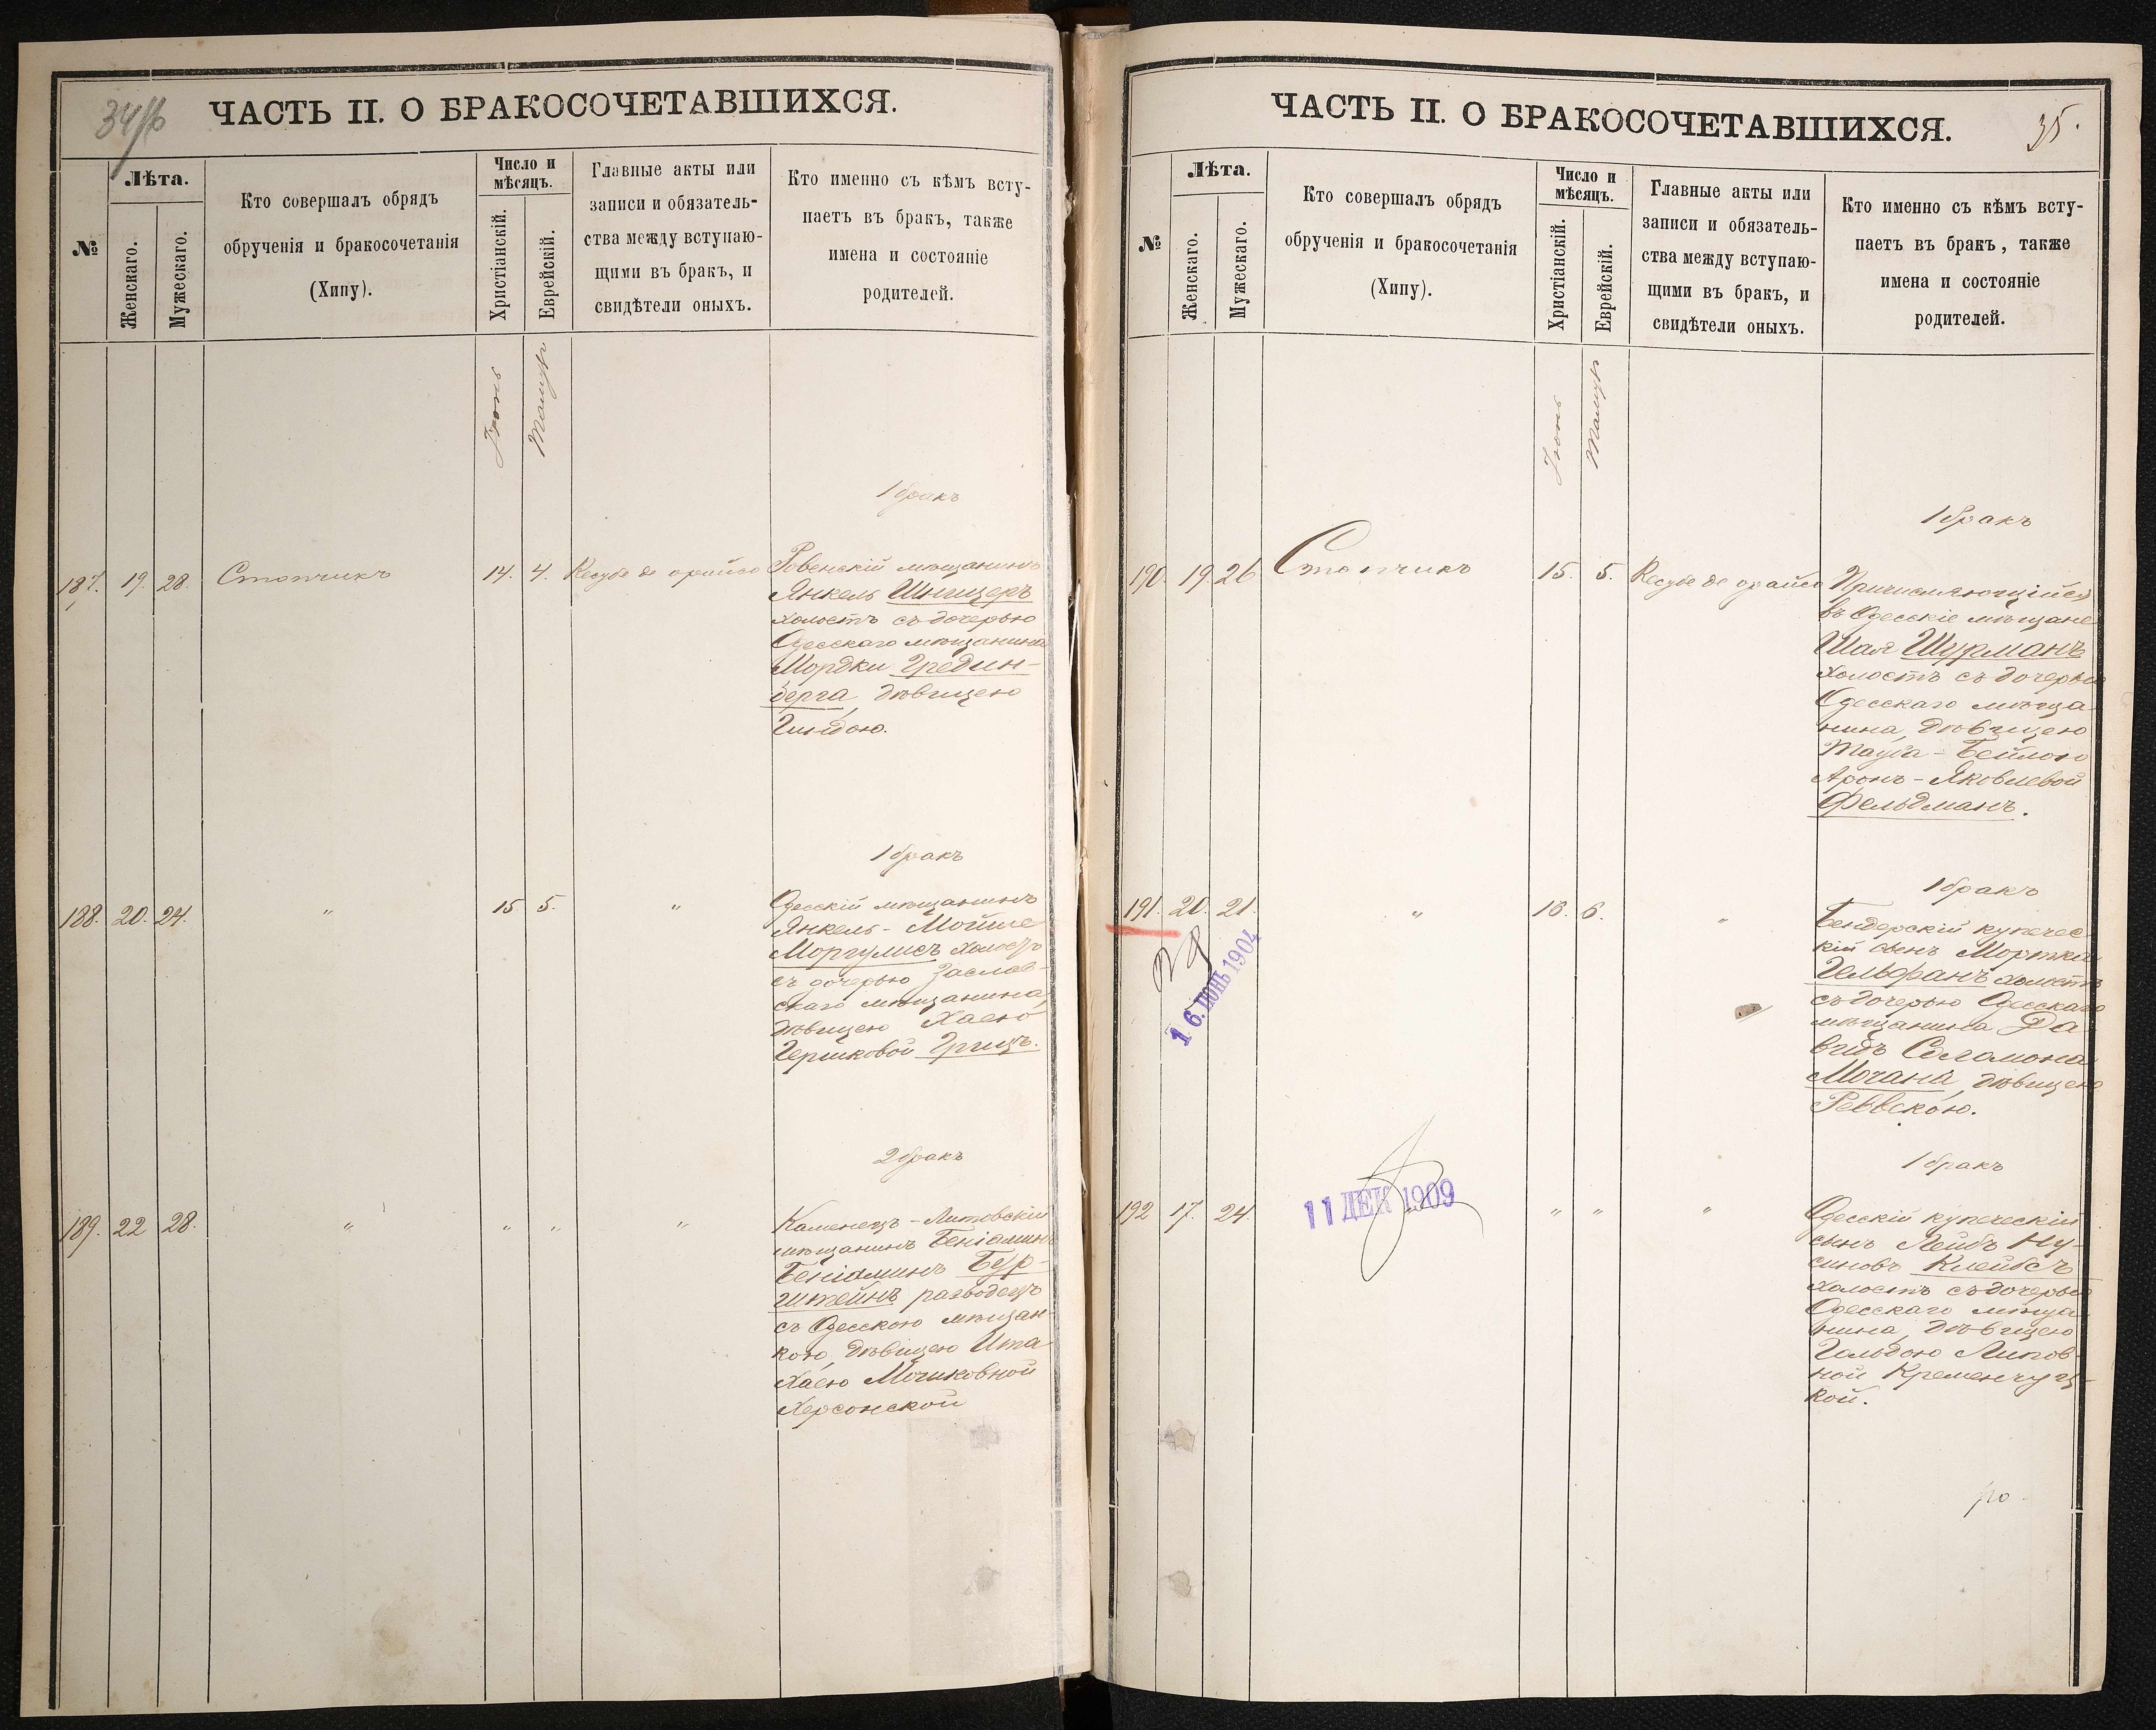 34/б
ЧАСТЬ II. О БРАКОСОЧЕТАВШИХСЯ.
№
Лѣта.
Женскаго.
Мужескаго.
Кто совершалъ обрядъ
обрученія и бракосочетанія
(Хипу).
Число и
мѣсяцъ.
Христіанскій.
Еврейскій.
Главные акты или
записи и обязатель-
ства между вступаю-
щими въ бракъ, и
свидѣтели оныхъ.
Кто именно съ кѣмъ всту-
паетъ въ бракъ, также
имена и состояніе
родителей.
Іюнь
Тамузъ
1 бракъ
187. 19. 28. Стопчикъ 14. 4. Кесубе де орайсо
Ровенскій мѣщанинъ
Янкель Шницеръ
холостъ съ дочерью
Одесскаго мѣщанина
Мордки Гредин-
берга, дѣвицею
Гиндою.
1 бракъ
188. 20. 24. " 15 5. "
Одесскій мѣщанинъ
Янкель-Мойше
Моргулисъ холостъ
съ дочерью Заслав-
скаго мѣщанина,
дѣвицею Хаею
Гершковой Грицъ.
2 бракъ
189. 22 28. " " " "
Каменецъ-Литовскій
мѣщанинъ Беніаминъ
Беніаминъ Бур-
штейнъ разводецъ
съ Одесскою мѣщан-
кою, дѣвицею Ита
Хаею Мошковной
Херсонской
ЧАСТЬ II. О БРАКОСОЧЕТАВШИХСЯ.
35.
№
Лѣта.
Женскаго.
Мужескаго.
Кто совершалъ обрядъ
обрученія и бракосочетанія
(Хипу).
Число и
мѣсяцъ.
Христіанскій.
Еврейскій.
Главные акты или
записи и обязатель-
ства между вступаю-
щими въ бракъ, и
свидѣтели оныхъ.
Кто именно съ кѣмъ всту-
паетъ въ бракъ, также
имена и состояніе
родителей.
Іюнь
Тамузъ
1 бракъ
190. 19. 26 Стопчикъ 15. 5. Кесубе де орайсо
Причисляющійся
въ Одесскіе мѣщане
Шая Шурманъ
холостъ съ дочерью
Одесскаго мѣща-
нина, дѣвицею
Тауба-Бейлою
Аронъ-Яковлевой
Фельдманъ.
1 бракъ
191. 20. 21. " 16. 6. "
16. ІЮНЬ 1904
Бендерскій купечес-
кій сынъ Мортка
Гельфанъ холостъ
съ дочерью Одесскаго
мѣщанина Да-
видъ Соломона
Мочана, дѣвицею
Реввекою.
1 бракъ
192 17. 24. " " " "
11 ДЕК 1909
Одесскій купеческій
сынъ Лейбъ Ну-
синовъ Клейбсъ
холостъ съ дочерью
Одесскаго мѣща-
нина, дѣвицею
Гольдою Липов-
ной Кременчуц-
кой.